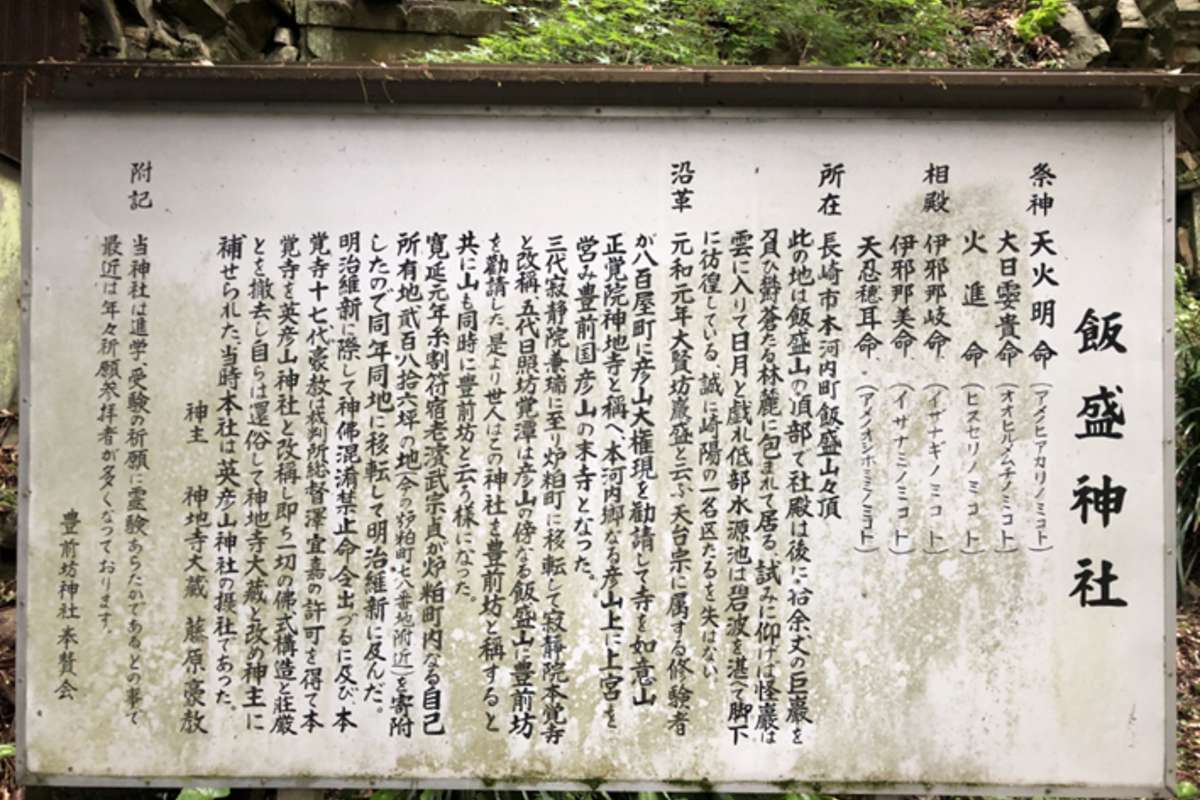 飯盛神社
祭神 天火明命 (アメノヒアカリノミコト)
大日孁貴命 (オオヒルメムチノミコト)
火進命 (ヒスセリノミコト)
相殿 伊邪那岐命 (イザナギノミコト)
伊邪那美命 (イサナミノミコト)
天忍穂耳命 (アメノオシホミミノミコト)
所在 長崎市本河内町飯盛山々頂
此の地は飯盛山の頂部で社殿は後に拾余丈の巨巖を
負ひ欝蒼たる林麓に包まれて居る、試みに仰げば怪巖は
雲に入りて日月と戯れ低部水源池は碧波を湛へて脚下
に彷徨している、誠に崎陽の一名区たるを失はない
沿革 元和元年大賢坊巖盛と云ふ天台宗に属する修験者
が八百屋町に彦山大権現を勧請して寺を如意山
正覚院神地寺と稱へ、本河内郷なる彦山上に上宮を
営み豊前国彦山の末寺となった。
三代寂静院兼瑞に至り炉粕町に移転して寂静院本覚寺
と改稱、五代日照坊覚潭は彦山の傍なる飯盛山に豊前坊
を勧請した是より世人はこの神社を豊前坊と稱すると
共に山も同時に豊前坊と云う様になった。
寛延元年糸割符宿老濱武宗貞が炉粕町内なる自己
所有地貮百八拾六坪の地(今の炉粕町七八番地附近)を寄附
したので同年同地に移転して明治維新に及んだ。
明治維新に際して神佛混淆禁止命令出づるに及び、本
覚寺十七代豪敖は裁判所総督澤宜嘉の許可を得て本
覚寺を英彦山神社と改稱し即ち一切の佛式構造と莊嚴
とを撤去し自らは還俗して神地寺大蔵と改め神主に
補せられた、当時本社は英彦山神社の摂社であった。
神主 神地寺大蔵 藤原豪敖
附記 当神社は進学、受験の祈願に霊験あらたかであるとの事で
最近は年々祈願参拝者が多くなっております。
豊前坊神社奉賛会